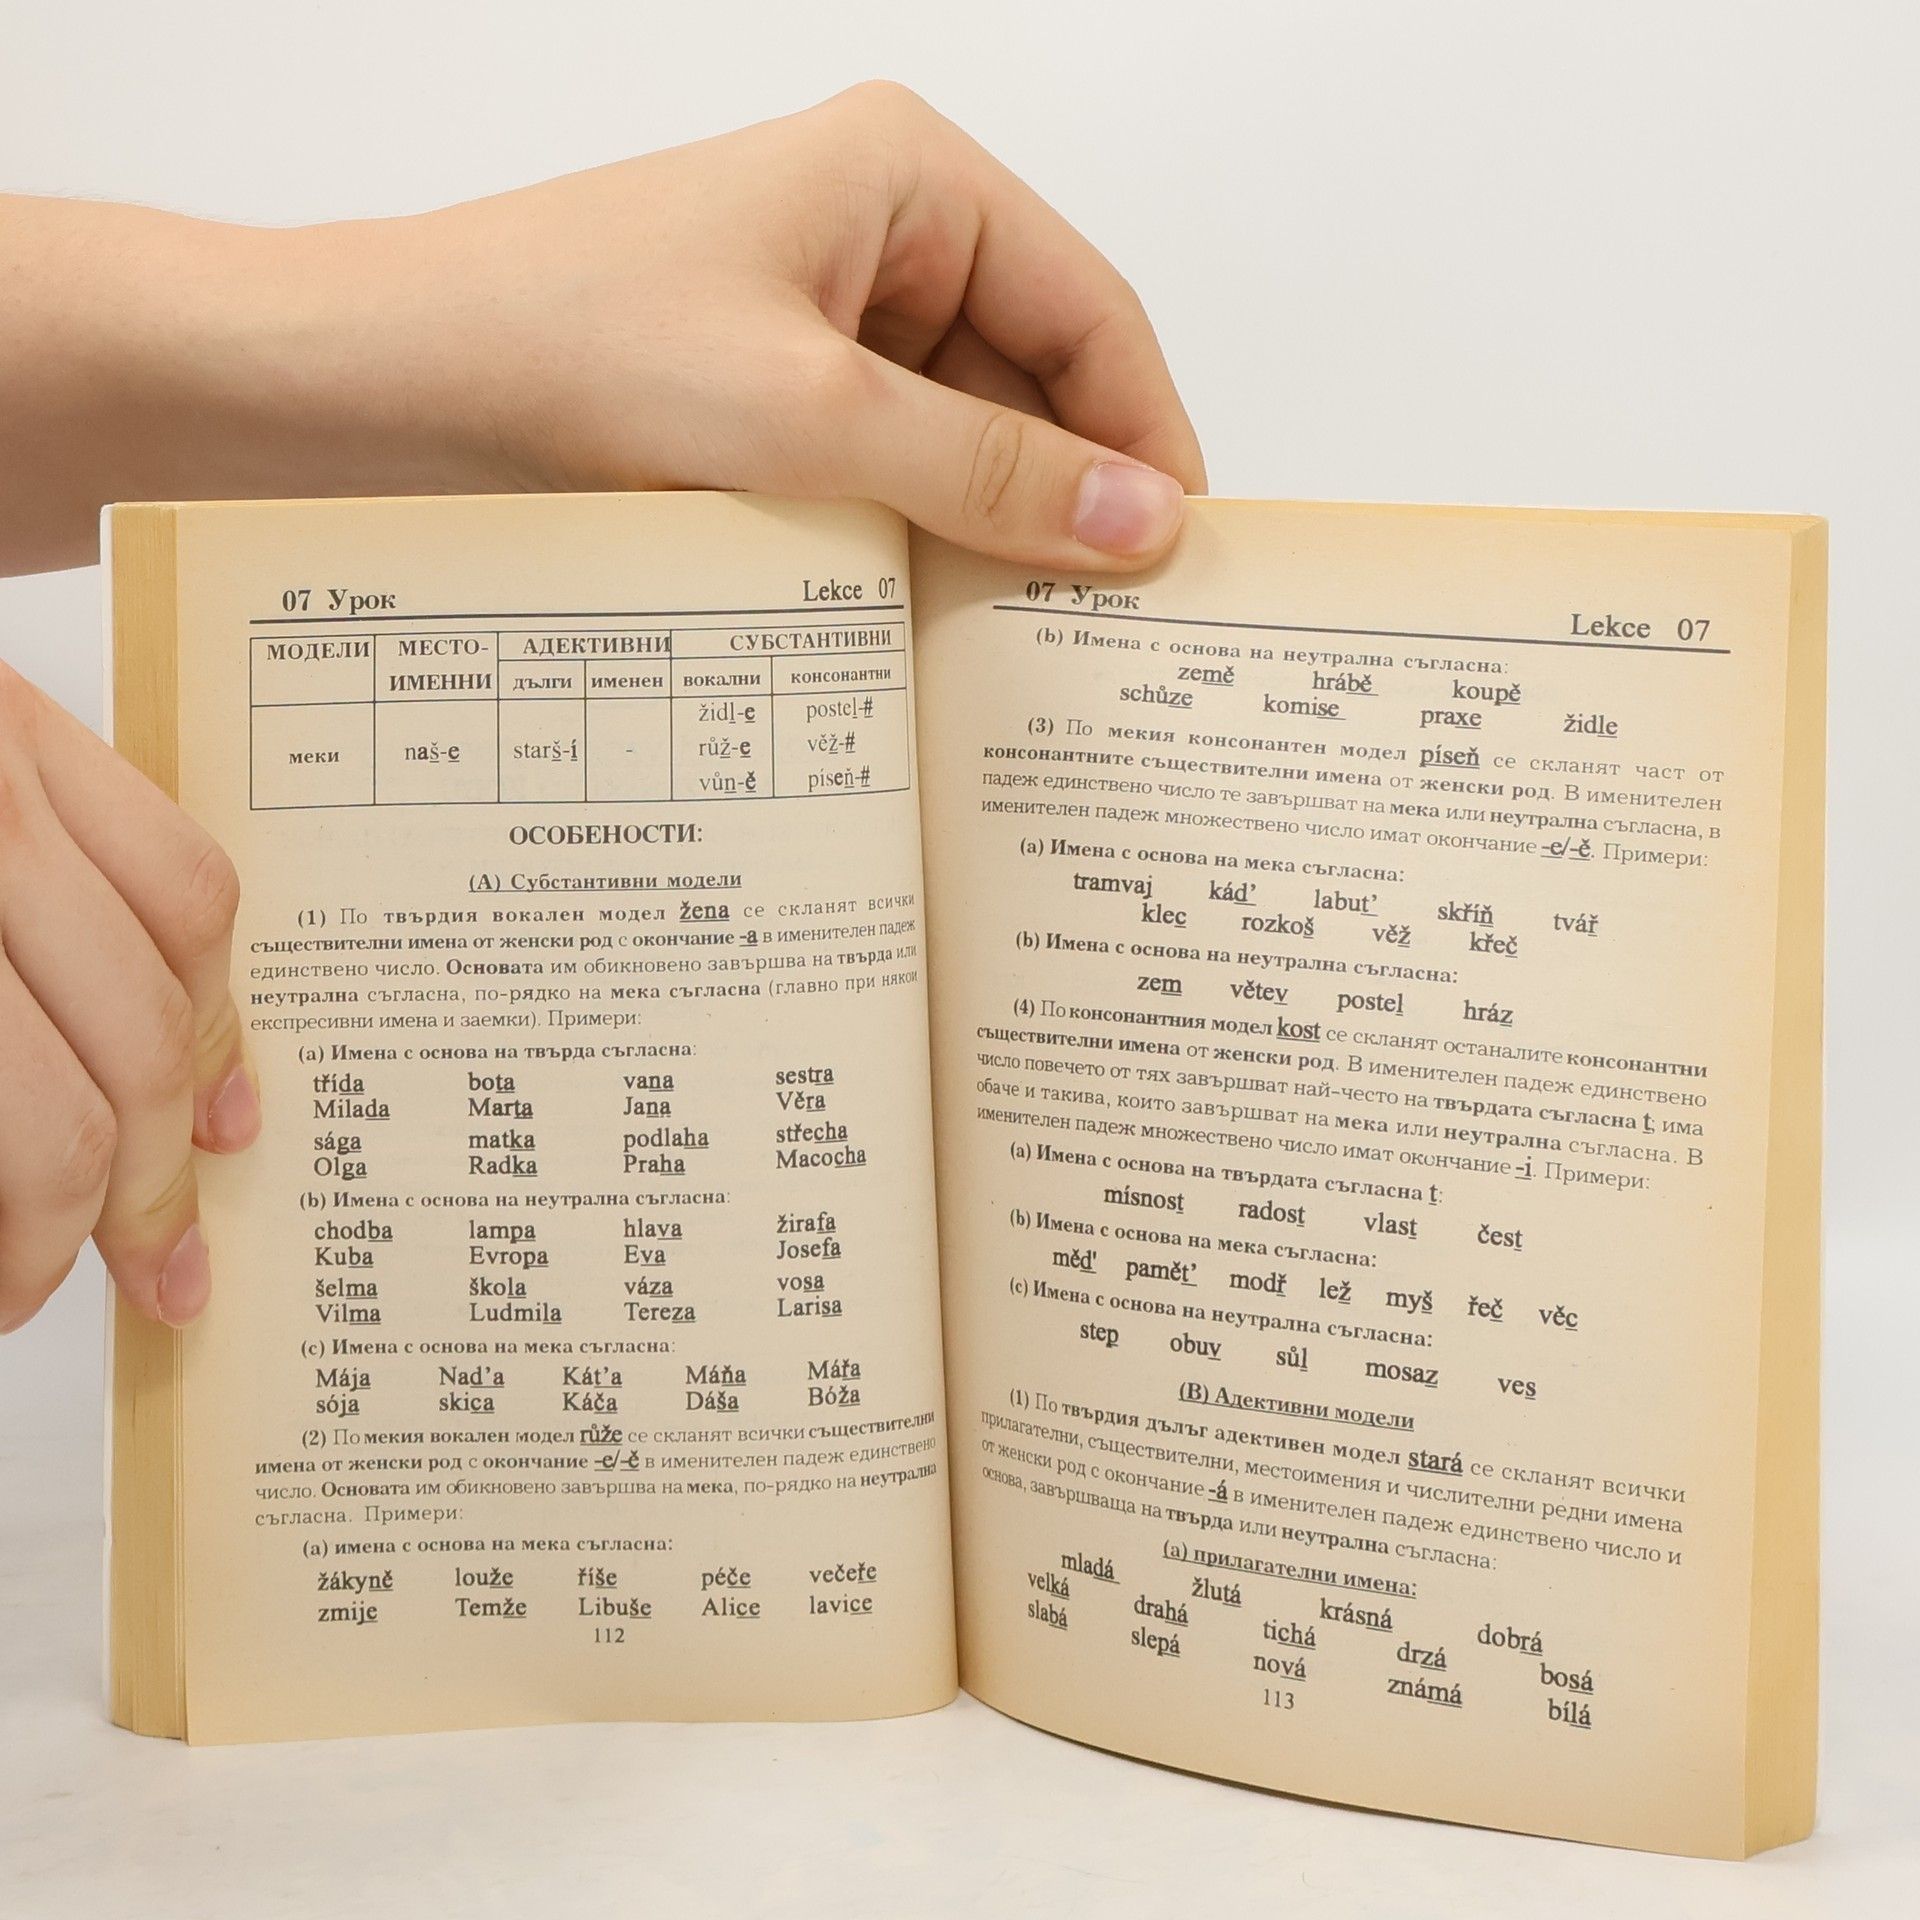 07 Урок Lekce 07
МОДЕЛИ МЕСТО- АДЕКТИВНИ СУБСТАНТИВНИ
ИМЕННИ дълги именен вокални консонантни
židl-e postel-#
меки naš-e starš-í - růž-e věž-#
vůn-ě píseň-#
ОСОБЕНОСТИ:
(А) Субстантивни модели
(1) По твърдия вокален модел žena се скланят всички
съществителни имена от женски род с окончание -a в именителен падеж
единствено число. Основата им обикновено завършва на твърда или
неутрална съгласна, по-рядко на мека съгласна (главно при някои
експресивни имена и заемки). Примери:
(a) Имена с основа на твърда съгласна:
třída bota vana sestra
Milada Marta Jana Věra
sága matka podlaha střecha
Olga Radka Praha Macocha
(b) Имена с основа на неутрална съгласна:
chodba lampa hlava žirafa
Kuba Evropa Eva Josefa
šelma škola váza vosa
Vilma Ludmila Tereza Larisa
(c) Имена с основа на мека съгласна:
Mája Nad’a Kát’a Máňa Mářa
sója skica Káča Dáša Bóža
(2) По мекия вокален модел růže се скланят всички съществителни
имена от женски род с окончание -e/-ě в именителен падеж единствено
число. Основата им обикновено завършва на мека, по-рядко на неутрална
съгласна. Примери:
(a) имена с основа на мека съгласна:
žákyně louže říše péče večeře
zmije Temže Libuše Alice lavice
112
07 Урок Lekce 07
(b) Имена с основа на неутрална съгласна:
země hrábě koupě
schůze komise praxe židle
(3) По мекия консонантен модел píseň се скланят част от
консонантните съществителни имена от женски род. В именителен
падеж единствено число те завършват на мека или неутрална съгласна, в
именителен падеж множествено число имат окончание -e/-ě. Примери:
(a) Имена с основа на мека съгласна:
tramvaj kád’ labut’ skříň tvář
klec rozkoš věž křeč
(b) Имена с основа на неутрална съгласна:
zem větev postel hráz
(4) По консонантния модел kost се скланят останалите консонантни
съществителни имена от женски род. В именителен падеж единствено
число повечето от тях завършват най-често на твърдата съгласна t; има
обаче и такива, които завършват на мека или неутрална съгласна. В
именителен падеж множествено число имат окончание -i. Примери:
(a) Имена с основа на твърдата съгласна t:
mísnost radost vlast čest
(b) Имена с основа на мека съгласна:
měd' pamět’ modř lež myš řeč věc
(c) Имена с основа на неутрална съгласна:
step obuv sůl mosaz ves
(В) Адективни модели
(1) По твърдия дълъг адективен модел stará се скланят всички
прилагателни, съществителни, местоимения и числителни редни имена
от женски род с окончание -á в именителен падеж единствено число и
основа, завършваща на твърда или неутрална съгласна:
(a) прилагателни имена:
mladá žlutá krásná dobrá
velká drahá tichá drzá bosá
slabá slepá nová známá bílá
113